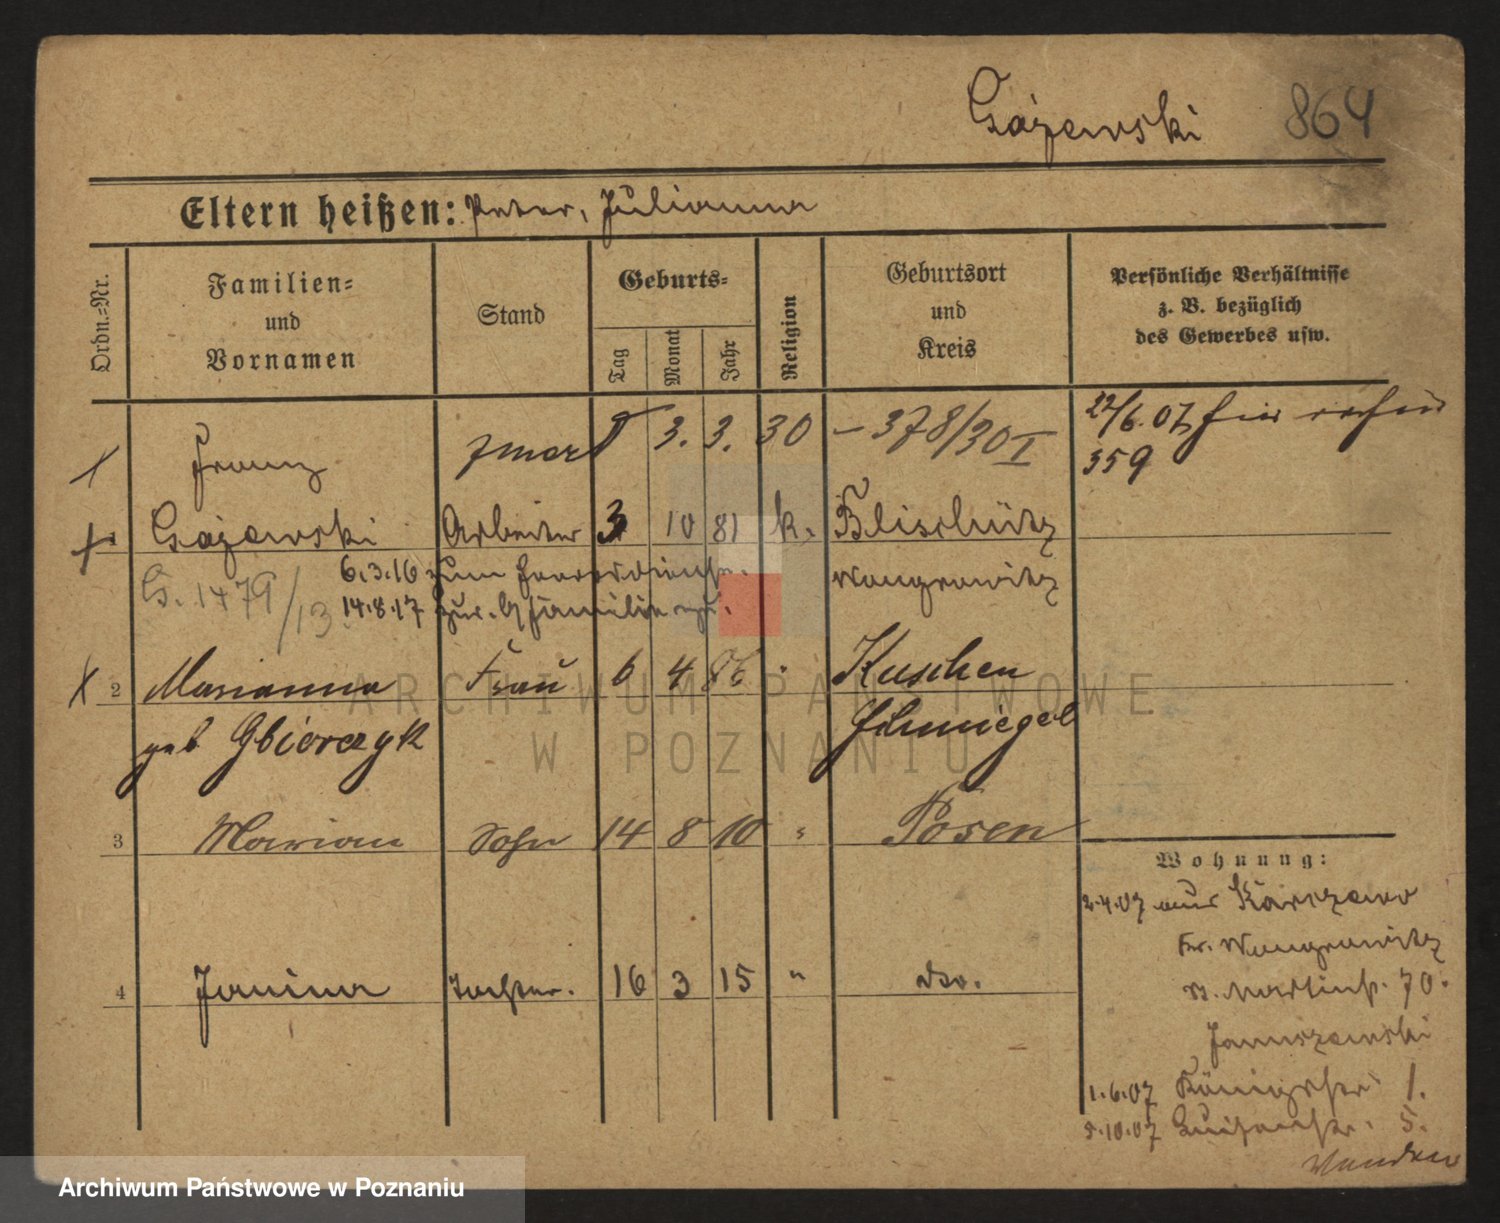 Gajewski 864
Eltern heißen: Peter, Julianna
Ordn.-Nr.
Familien-
und
Vornamen
Stand
Geburts-
Tag
Monat
Jahr
Religion
Geburtsort
und
Kreis
Persönliche Verhältnisse
z. B. bezüglich
des Gewerbes usw.
Franz 3. 3. 30 – 378/30 I
22/6.07 hier
359
Gajewski Arbeiter 3 10 81 k.
Wongrowitz
G. 1479/13
6.3.16 zum Heeresdienst.
14.8.17 zur. Familie
2 Marianna Frau 6 4 86 " Kuschen
geb Gbiorczyk Schmiegel
3 Marian Sohn 14 8 10 " Posen
4 Janina Tochter. 16 3 15 " dso.
Wohnung:
2.4.07 aus Karczewo
Kr. Wongrowitz
St. Martinst. 70.
Januszewski
1.6.07 Königstr 1.
5.10.07 Luisenstr. 5.
ARCHIWUM PAŃSTWOWE
W POZNANIU
Archiwum Państwowe w Poznaniu